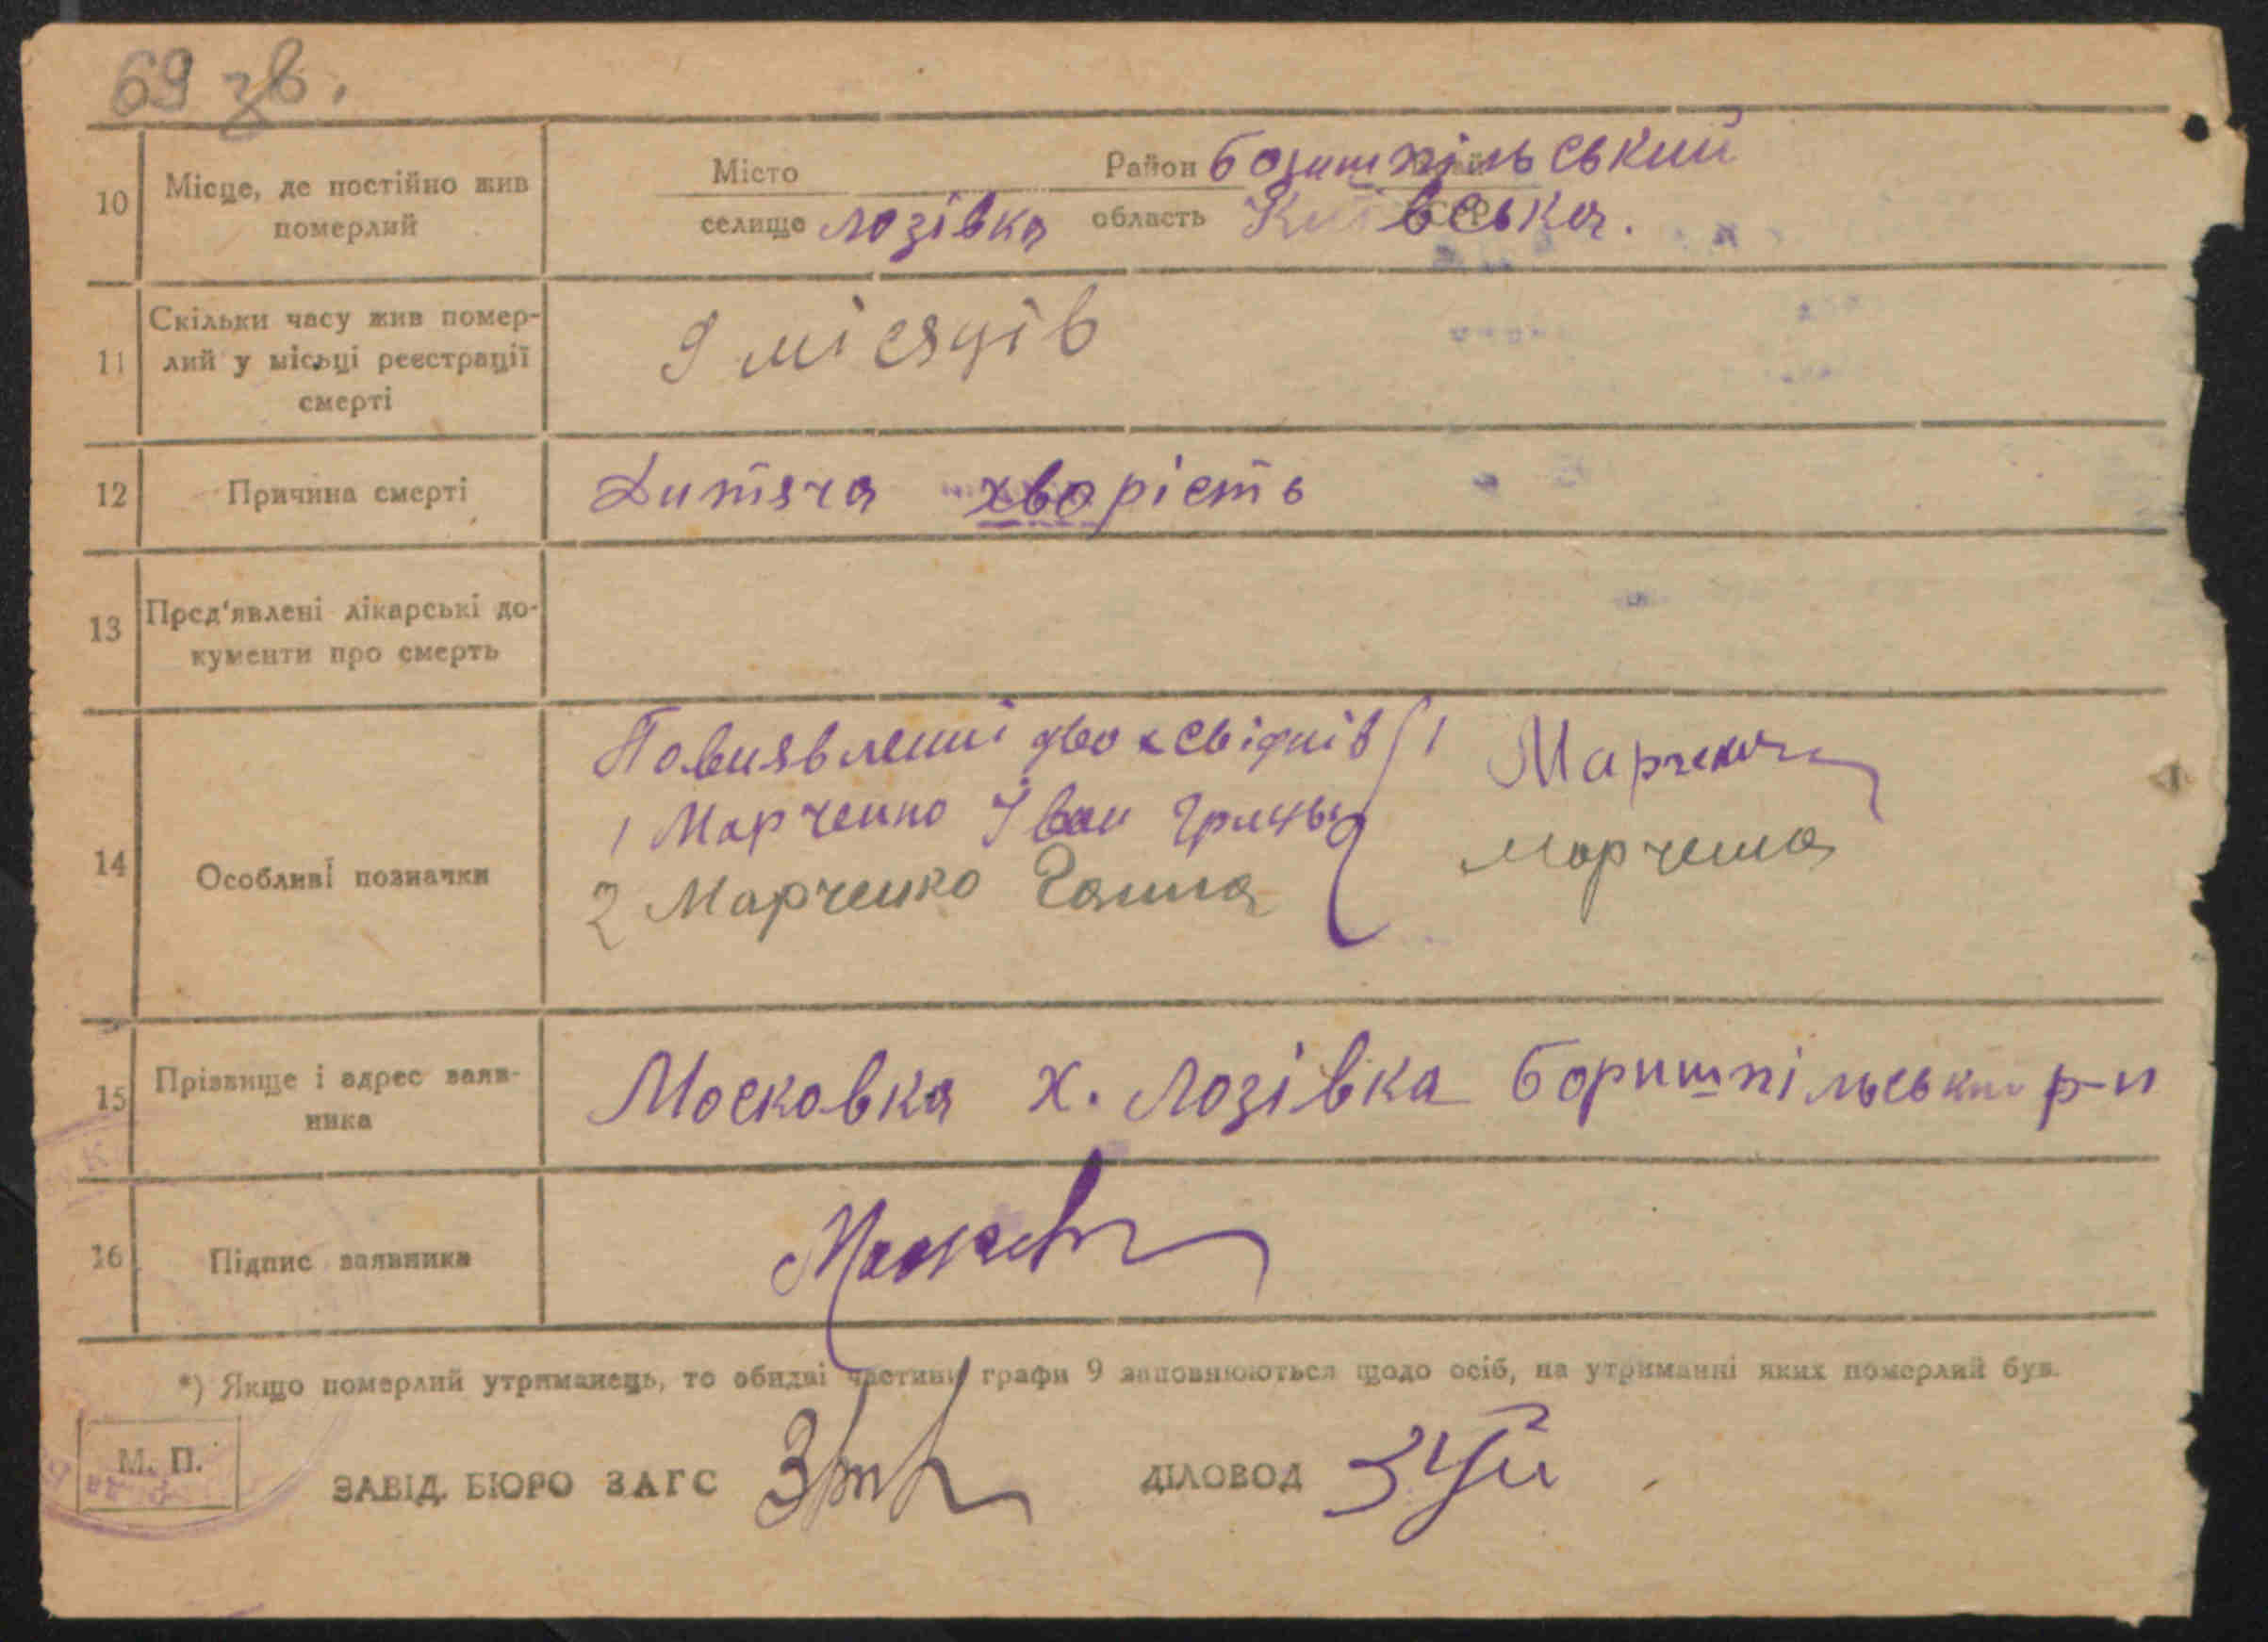 69 зв.
10 Місце, де постійно жив померлий
Місто Район Боришпільський
селище Лозівка область Київська.
11 Скільки часу жив помер-
лий у місьці реєстрації
смерті
9 місяців
12 Причина смерті Дитяча хворість
13 Пред'явлені лікарські до-
кументи про смерть
14 Особливі позначки
Повиявленні двох свідків 1 Марченко
1 Марченко Іван Грицьк
2 Марченко Ганна Марченко
15 Прізвище і адрес заяв-
ника
Московка х. Лозівка Боришпільськи р-н
16 Підпис заявника
*) Якщо померлий утриманець, то обидві частини графи 9 заповнюються щодо осіб, на утриманні яких померлий був.
М. П.
ЗАВІД. БЮРО ЗАГС ДІЛОВОД Зуй